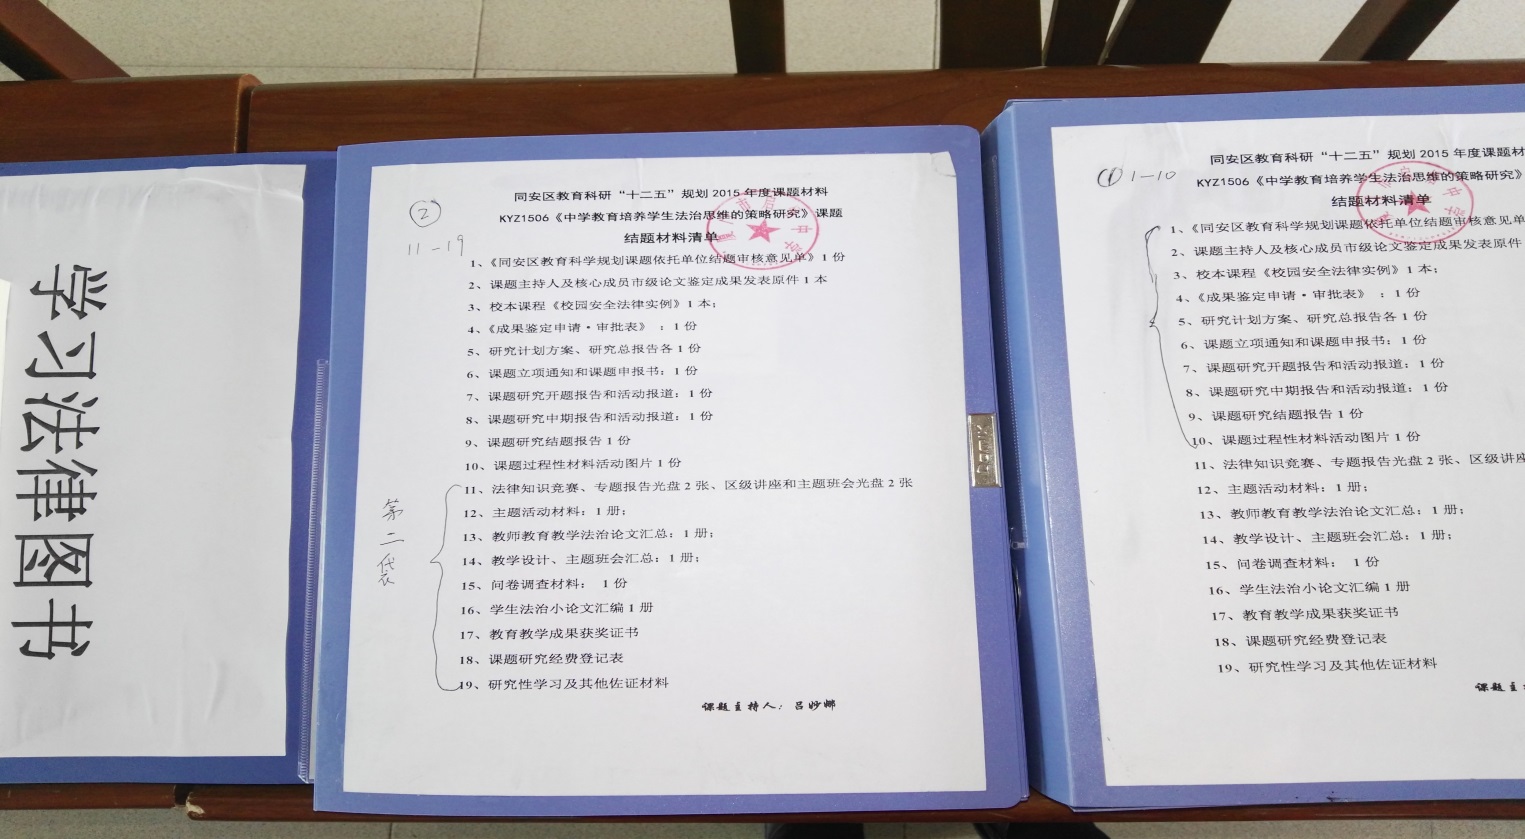 学习法律图书
②
11-19
同安区教育科研“十二五”规划2015年度课题材料
KYZ1506《中学教育培养学生法治思维的策略研究》课题
结题材料清单
1、《同安区教育科学规划课题依托单位结题审核意见单》1份
2、课题主持人及核心成员市级论文鉴定成果发表原件1本
3、校本课程《校园安全法律实例》1本；
4、《成果鉴定申请·审批表》 ：1份
5、研究计划方案、研究总报告各1份
6、课题立项通知和课题申报书：1份
7、课题研究开题报告和活动报道：1份
8、课题研究中期报告和活动报道：1份
9、课题研究结题报告1份
10、课题过程性材料活动图片1份
11、法律知识竞赛、专题报告光盘2张、区级讲座和主题班会光盘2张
12、主题活动材料：1册；
13、教师教育教学法治论文汇总：1册；
14、教学设计、主题班会汇总：1册；
15、问卷调查材料： 1份
16、学生法治小论文汇编1册
17、教育教学成果获奖证书
18、课题研究经费登记表
19、研究性学习及其他佐证材料
第二袋
课题主持人：吕妙娜
① 1-10
同安区教育科研“十二五”规划2015年度课题材
KYZ1506《中学教育培养学生法治思维的策略研究》
结题材料清单
1、《同安区教育科学规划课题依托单位结题审核意见单
2、课题主持人及核心成员市级论文鉴定成果发表原件
3、校本课程《校园安全法律实例》1本；
4、《成果鉴定申请·审批表》 ：1份
5、研究计划方案、研究总报告各1份
6、课题立项通知和课题申报书：1份
7、课题研究开题报告和活动报道：1份
8、课题研究中期报告和活动报道：1份
9、课题研究结题报告1份
10、课题过程性材料活动图片1份
11、法律知识竞赛、专题报告光盘2张、区级讲座
12、主题活动材料：1册；
13、教师教育教学法治论文汇总：1册；
14、教学设计、主题班会汇总：1册；
15、问卷调查材料： 1份
16、学生法治小论文汇编1册
17、教育教学成果获奖证书
18、课题研究经费登记表
19、研究性学习及其他佐证材料
课题主